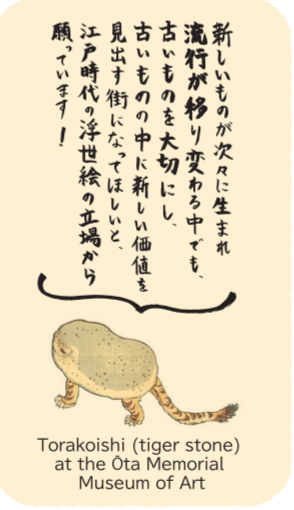 新しいものが次々に生まれ
流行が移り変わる中でも、
古いものを大切にし、
古いものの中に新しい価値を
見出す街になってほしいと、
江戸時代の浮世絵の立場から
願っています！
Torakoishi (tiger stone)
at the Ōta Memorial
Museum of Art